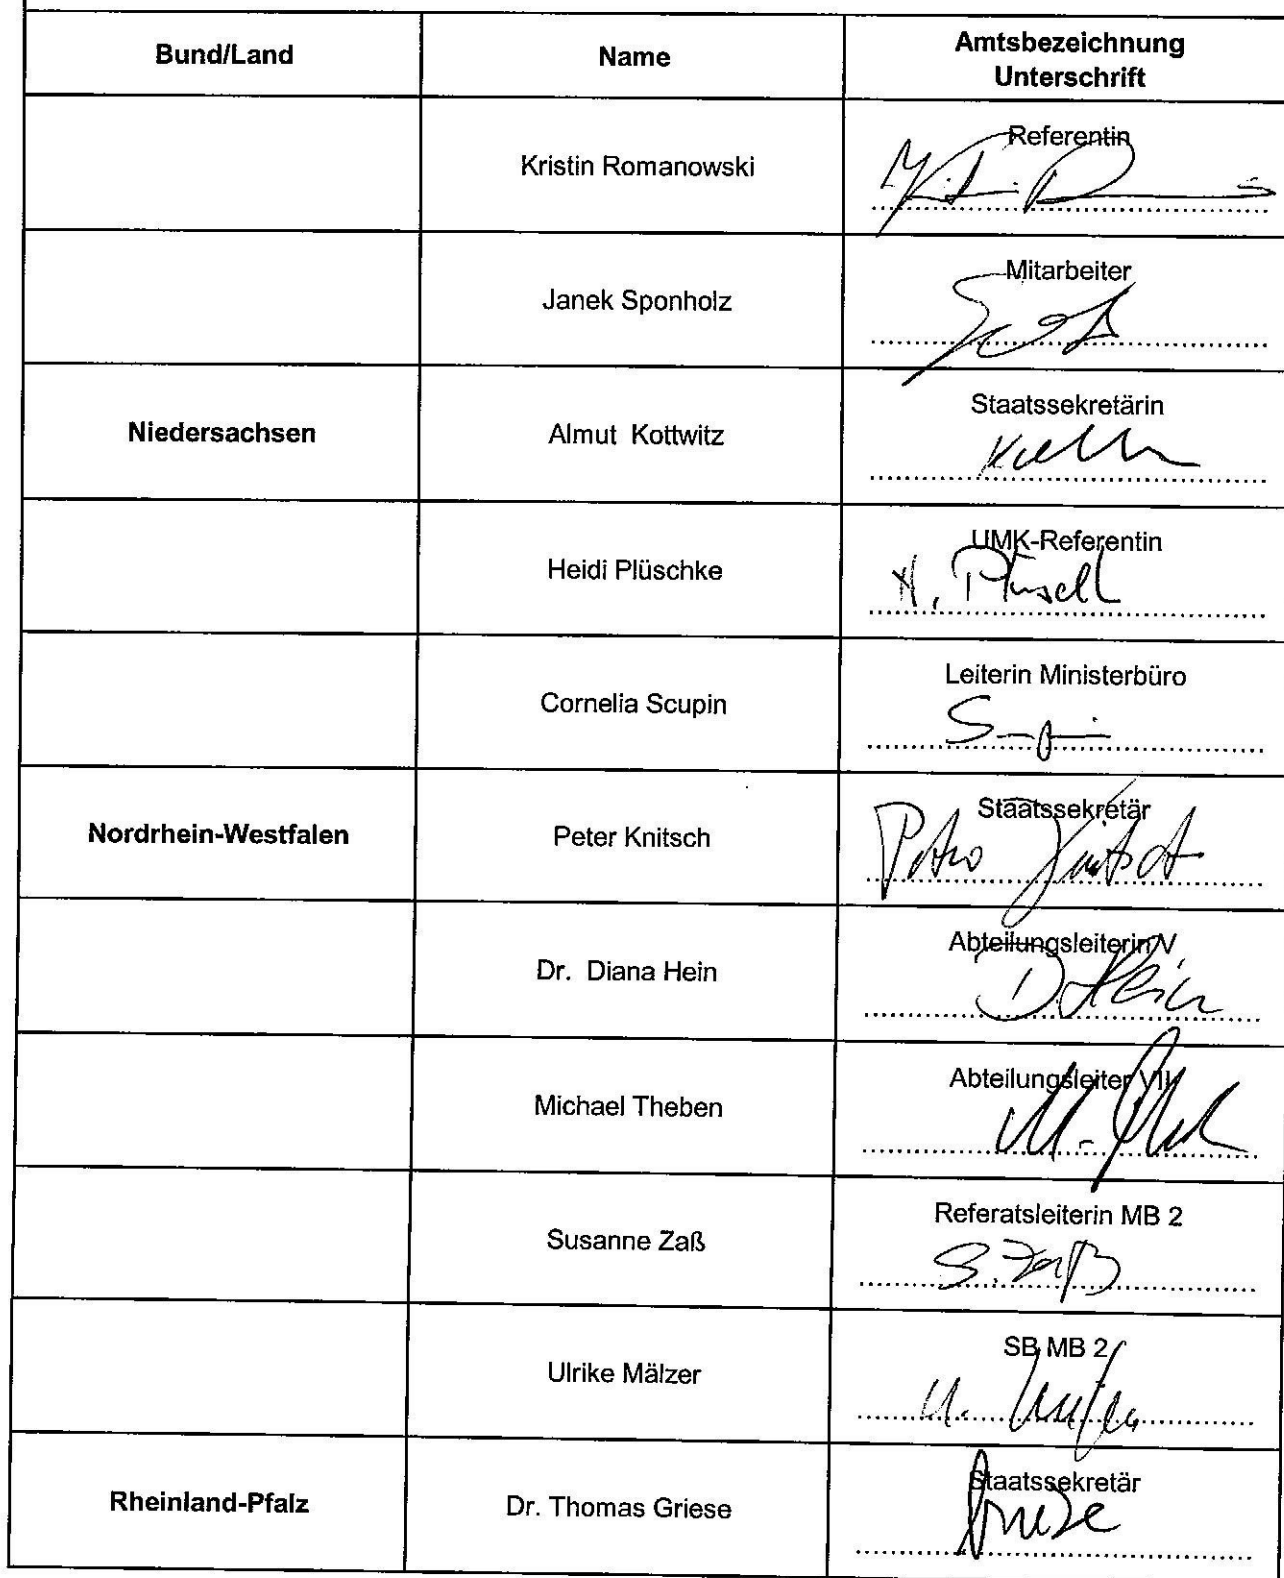 Bund/Land Name Amtsbezeichnung
Unterschrift
Kristin Romanowski Referentin
Janek Sponholz Mitarbeiter
Niedersachsen Almut Kottwitz Staatssekretärin
Heidi Plüschke UMK-Referentin
H. Plüsch
Cornelia Scupin Leiterin Ministerbüro
Nordrhein-Westfalen Peter Knitsch Staatssekretär
Peter Knitsch
Dr. Diana Hein Abteilungsleiterin V
D. Hein
Michael Theben Abteilungsleiter VII
Susanne Zaß Referatsleiterin MB 2
S. Zaß
Ulrike Mälzer SB MB 2
Rheinland-Pfalz Dr. Thomas Griese Staatssekretär
Griese